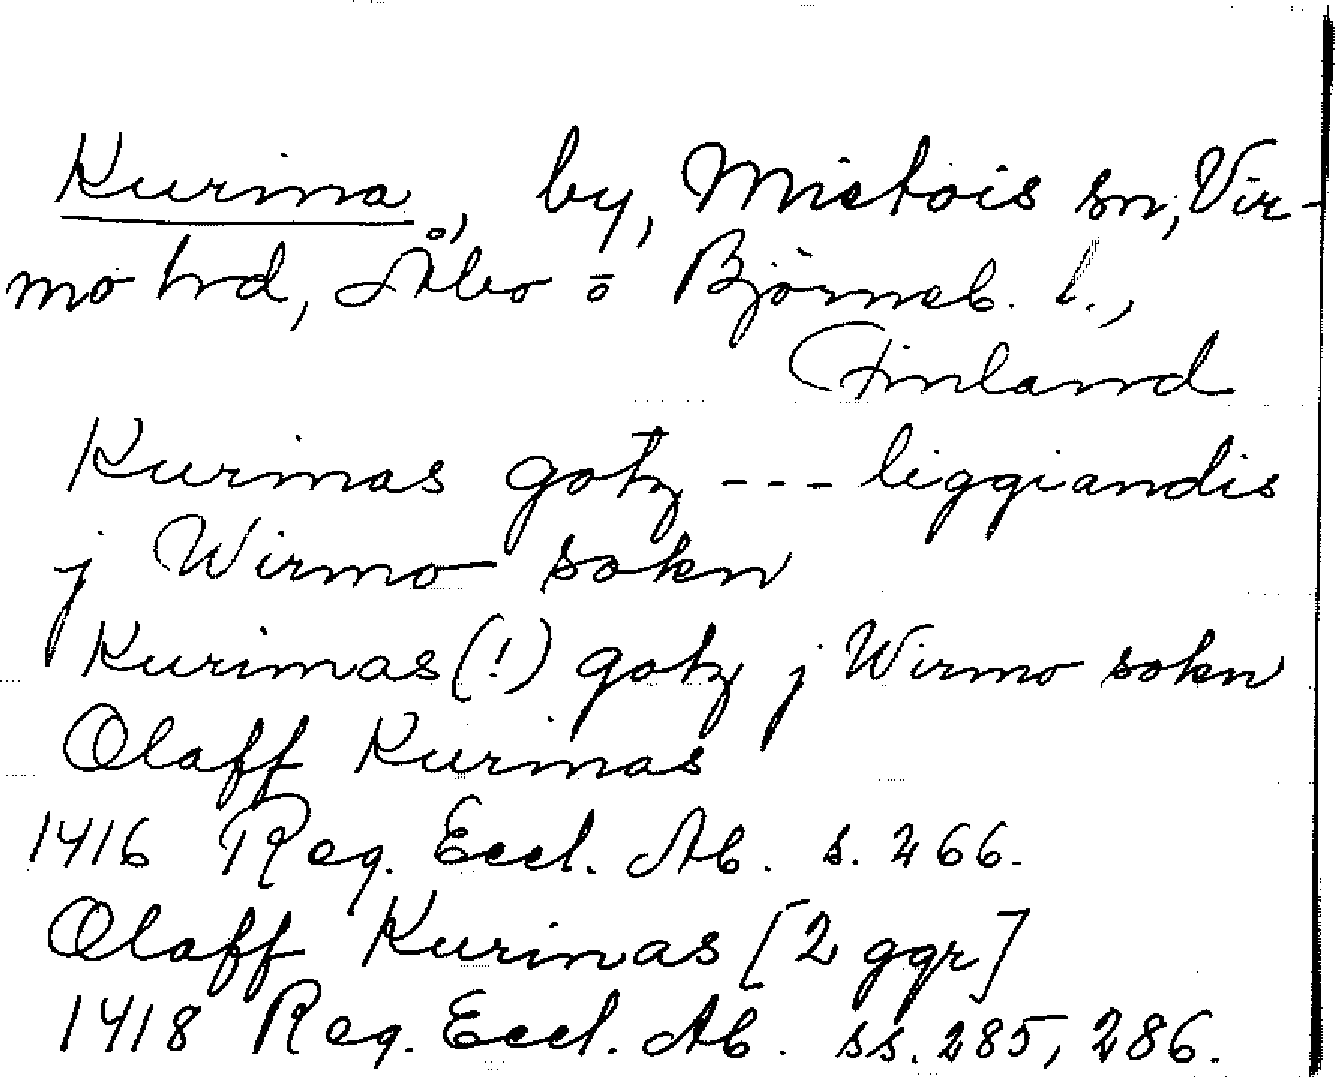 Kurima, by, Mietois sn, Vir-
mo hrd, Åbo o Björneb. l.,
Finland
Kurimas gotz --- liggiandis
j Wirmo sokn
Kurimas (!) gotz j Wirmo sokn
Olaff Kurimas
1416 Reg. Eccl. Ab. s. 266.
Olaff Kurimas [2 ggr]
1418 Reg. Eccl. Ab. ss. 285, 286.